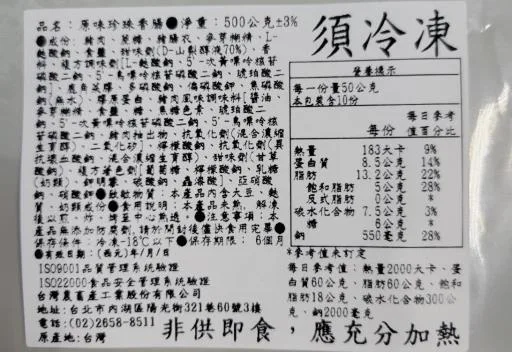 品名：原味珍珠香腸●淨重：500公克±3%
●成份：豬肉、蔗糖、豬腸衣、麥芽糊精、L-
麩酸鈉、食鹽、甜味劑(D-山梨醇液70%)、香
料、複方調味劑[L-麩酸鈉、5'-次黃嘌呤核苷
磷酸二鈉、5'-鳥嘌呤核苷磷酸二鈉、琥珀酸二
鈉]、鹿角菜膠、多磷酸鈉、偏磷酸鉀、焦磷酸
鈉(無水)、膠原蛋白、豬肉風味調味料[醬油、
麥芽糊精、食鹽、糖、焦糖色素、琥珀酸二
鈉、5'-次黃嘌呤核苷磷酸二鈉、5'-鳥嘌呤核
苷磷酸二鈉、豬肉抽出物、抗氧化劑(混合濃縮
生育醇)、二氧化矽]、檸檬酸鈉、抗氧化劑(異
抗壞血酸鈉、混合濃縮生育醇)、甜味劑(甘草
酸鈉)、複方著色劑[葡萄糖、檸檬酸鈉、乳糖
(奶類)、鉀明礬、碳酸鈉、蟲漆酸]、亞硝酸
鈉、硝酸鉀●致敏物質：本產品內含大豆、麩
質、奶類成份●食用說明：本產品未熟，解凍
後以煎、炸、烤至中心熟透。●注意事項：本
產品無添加防腐劑,請於開封後儘快食用完畢●
保存條件：冷凍-18℃以下●保存期限：6個月
●有效日期：(西元)年/月/日
ISO9001品質管理系統驗證
ISO22000食品安全管理系統驗證
台灣農畜產工業股份有限公司
地址：台北市內湖區陽光街321巷60號3樓
電話：(02)2658-8511
原產地：台灣
須冷凍
營養標示
每一份量50公克
本包裝含10份
每份 每日參考值百分比
熱量 183大卡 9%
蛋白質 8.5公克 14%
脂肪 13.2公克 22%
飽和脂肪 5公克 28%
反式脂肪 0公克 *
碳水化合物 7.5公克 3%
糖 6公克 *
鈉 550毫克 28%
*參考值未訂定
每日參考值：熱量2000大卡、蛋
白質60公克、脂肪60公克、飽和
脂肪18公克、碳水化合物300公
克、鈉2000毫克
非供即食，應充分加熱